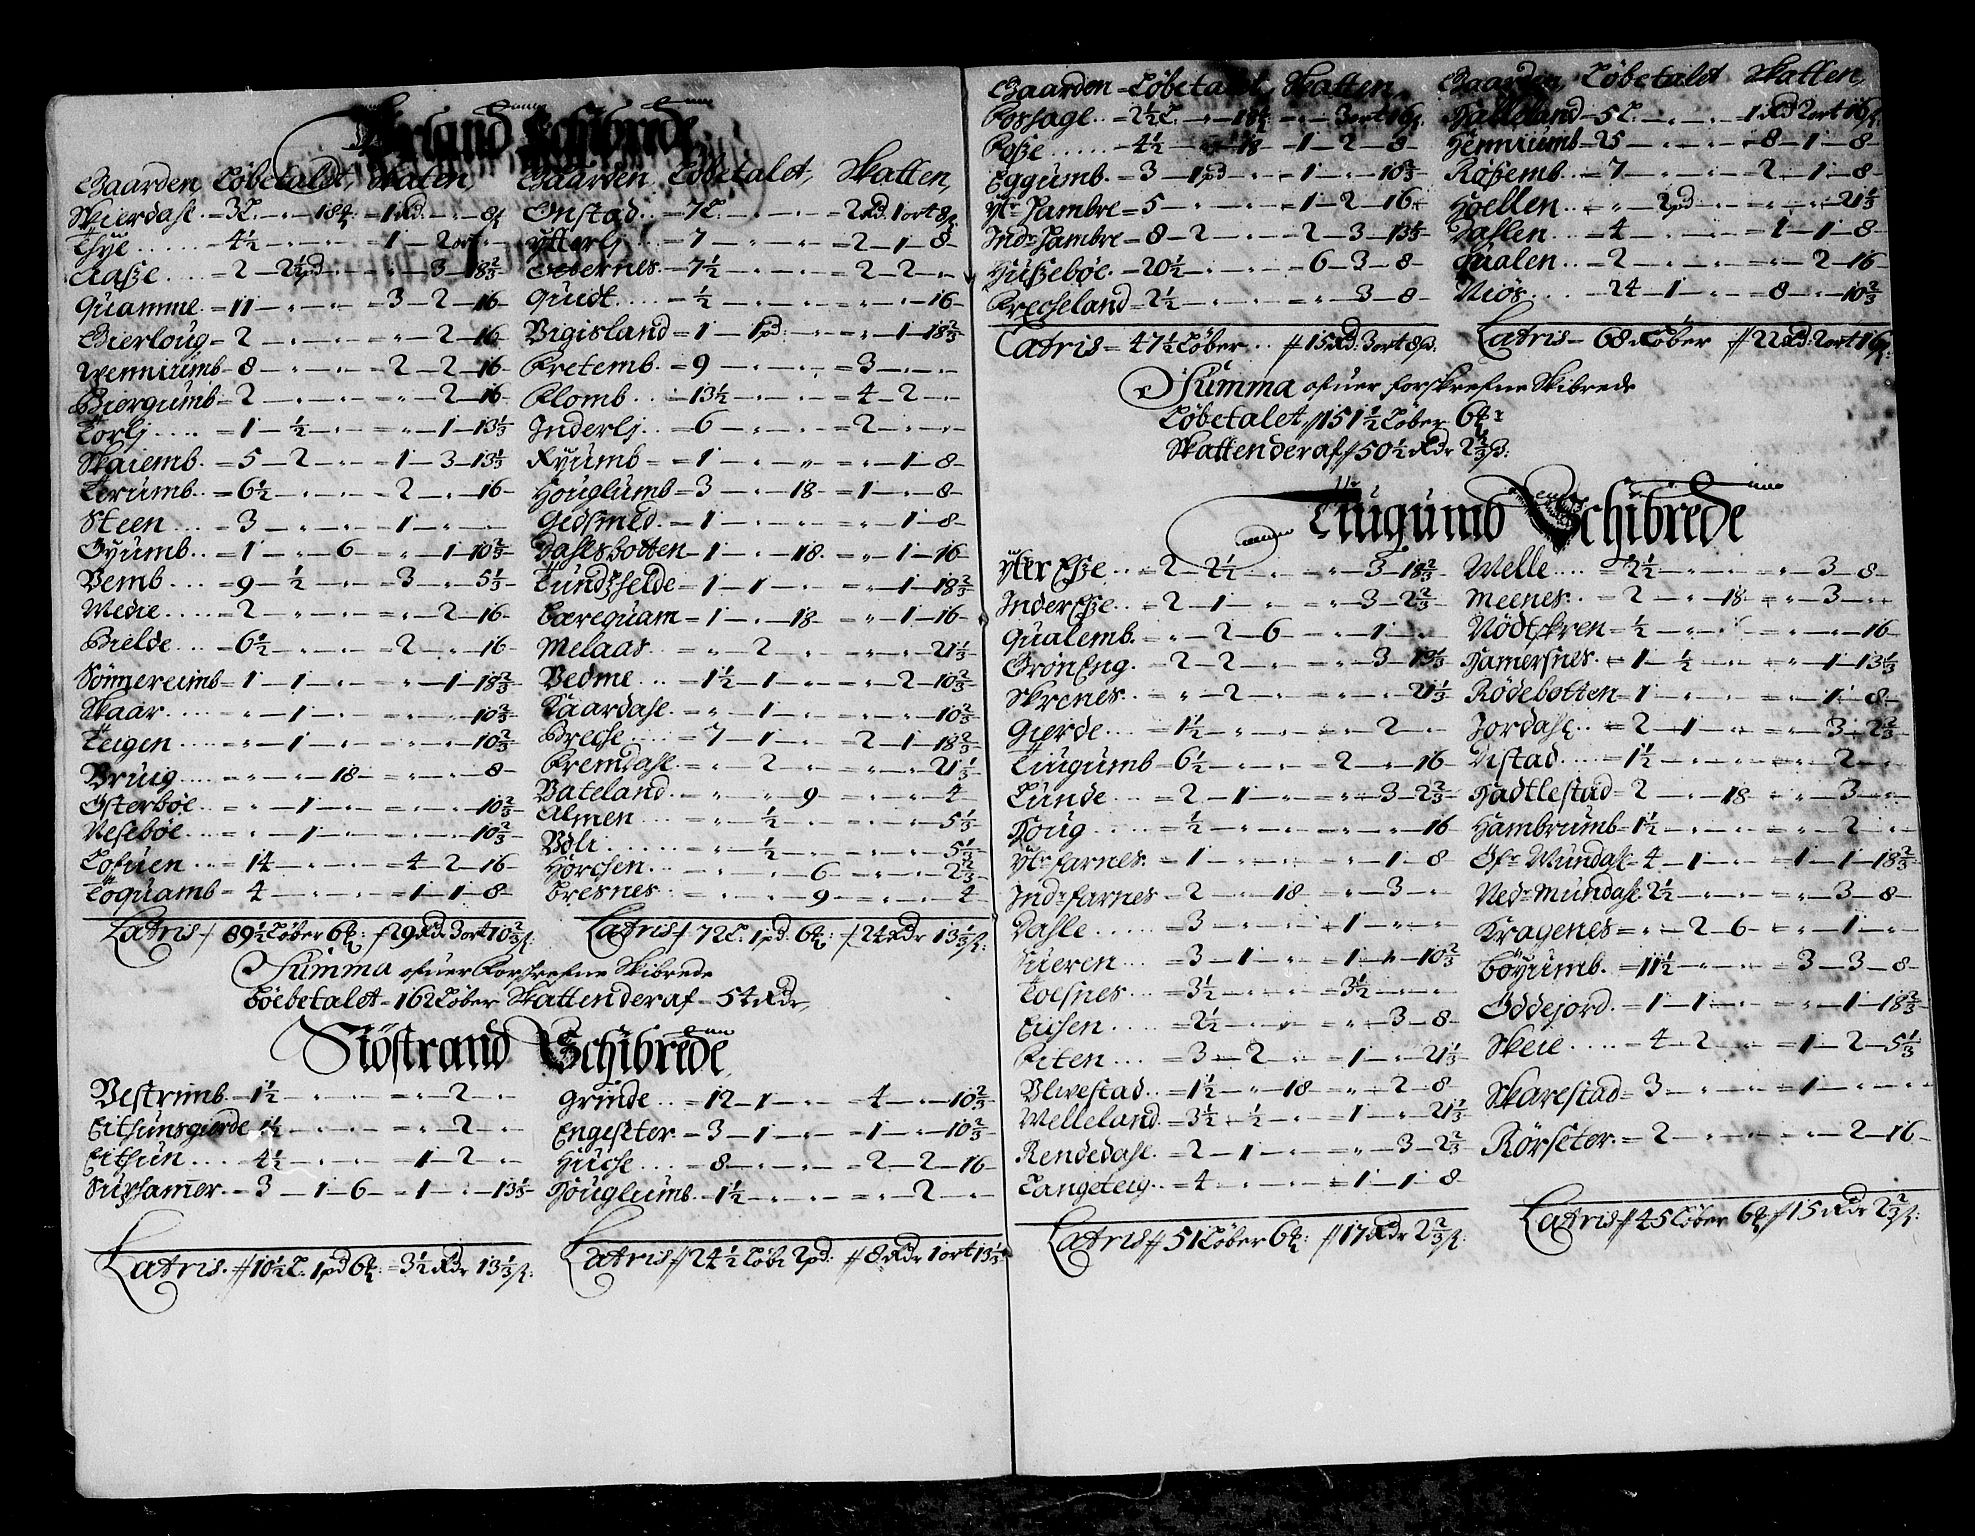 Urland Schibrede
Gaarden, Löbetaldt, Skaten,
Skierdahl = 3 L. - " - 18 = 1 Rd. - " - 8
Thye = 4½ - " - " = 1 - 2 ort -
Aaße = 2 - 2½ pd - " = " - 3 - 18⅔
Quamme = 11 - " - " = 3 - 2 - 16
Gierloug = 2 - " - " = " - 2 - 16
Wenniumb = 8 - " - " = 2 - 2 - 16
Biergumb = 2 - " - " = " - 2 - 16
Torlj = 1 - ½ - " = " - 1 - 13⅓
Skaiemb = 5 - 2 - " = 1 - 3 - 13⅓
Frumb = 6½ - " - " = 2 - " - 16
Steen = 3 - " - " = 1 - " -
Oyumb = 1 - " - 6 = " - 1 - 10⅔
Vemb = 9 - ½ - " = 3 - " - 5⅓
Medie = 2 - " - " = " - 2 - 16
Bielde = 6½ - " - " = 2 - " - 16
Sönnereimb = 1 - 1 - " = " - 1 - 18⅔
Skaar = " - 1 - " = " - " - 10⅔
Teigen = " - 1 - " = " - " - 10⅔
Bruig = " - " - 18 = " - " - 8
Österböe = " - 1 - " = " - " - 10⅔
Neseböe = " - 1 - " = " - " - 10⅔
Lofuen = 14 - " - " = 4 - 2 - 16
Töquamb = 4 - " - " = 1 - 1 - 8
Latris // 89½ Löber 6 : // 29 Rd. 3 ort 10⅔
Gaarden, Löbetalet, Skatten,
Onstad = 7 L. - " - " = 2 Rd. 1 ort 8
Ytterlj = 7 - " - " = 2 - 1 - 8
Otternes = 7½ - " - " = 2 - 2 -
Quidt = ½ - " - " = " - " - 16
Vigisland = 1 - 1 pd - " = " - 1 - 18⅔
Fretemb = 9 - " - " = 3 - " -
Flomb = 13½ - " - " = 4 - 2 -
Inderlj = 6 - " - " = 2 - " -
Ryumb = 1 - " - " = " - 1 - 8
Houglumb = 3 - " - 18 = 1 - " - 8
Gidsmed = 1 - " - " = " - 1 - 8
Dahlsbotten = 1 - " - 18 = " - 1 - 16
Tundshelde = 1 - 1 - " = " - 1 - 18⅔
Berequam = 1 - " - 18 = " - 1 - 16
Melaas = " - 2 - " = " - " - 21⅓
Vedme = 1½ - 1 - " = " - 2 - 10⅔
Kaardahl = " - 1 - " = " - " - 10⅔
Breche = 7 - 1 - " = 2 - 1 - 18⅔
Fremdahl = " - 2 - " = " - " - 21⅓
Vateland = " - " - 9 = " - " - 4
Almen = " - ½ - " = " - " - 5⅓
Voli = " - ½ - " = " - " - 5⅓
Horchen = " - " - 6 = " - " - 2⅔
Fresnes = " - " - 9 = " - " - 4
Latris // 72 L. 1 pd. 6 : // 24 Rdr 13⅓
Summa ofuer Forskrefne Skibrede
Löebetalet - 162 Löber Skatten deraf - 54 Rdr,
Siöstrand Schibrede
Vestrimb = 1½ - " - " = " - 2 -
Eithunsgierde 1½ - " - " = " - 2 -
Eithun = 4½ - " - " = 1 - 2 -
Suphamer = 3 - 1 - 6 = 1 - " - 13⅓
Latris // 10½ L. 1 pd 6 : = 3½ Rdr 13⅓
Grinde = 12 - 1 - " = 4 - " - 10⅔
Engesetter = 3 - 1 - " = 1 - " - 10⅔
Huche = 8 - " - " = 2 - 2 - 16
Houglumb = 1½ - " - " = " - 2 -
Latris // 24½ Löb: 2 pd: // 8 Rdr 1 ort 13⅓
Gaarden = Löbetalet, Skatten,
Fossage = 2½ L. - " - 18 = " - 3 ort 16
Foße = 4½ - " - 18 - 1 - 2 - 8
Eggumb = 3 - 1 pd - " = 1 - " - 10⅔
Ytr Hambre = 5 - " - " = 1 - 2 - 16
Indr Hambre = 8 - 2 - " = 2 - 3 - 13⅓
Hußeböe = 20½ - " - " = 6 - 3 - 8
Frecheland = 2½ - " - " = " - 3 - 8
Latris = 47½ Löber // 15 Rd: 3 ort 8 ß.
Gaarden, Löbetalet, Skatten,
Talleland = 5 L. - " - " 1 Rd 2 ort 16
Henniumb = 25 - " - " = 8 - 1 - 8
Röhsemb = 7 - " - " = 2 - 1 - 8
Hoellen = " - 2 pd - " = " - " - 21⅓
Dahlen = 4 - " - " = 1 - 1 - 8
Qualen = 2 - " - " = " - 2 - 16
Niös = 24 - 1 - " = 8 - " - 10⅔
Latris - 68 Löber // 22 Rd: 2 ort 16
Summa ofuer forskrefne Skibrede
Löbetalet // 151½ Löber 6
Skatten deraf // 50½ Rdr 2⅔ ß:
Tiugumb Schibrede
Ytter Eße = 2 - 2½ - " = " - 3 - 18⅔
Inder Eße = 2 - 1 - " = " - 3 - 2⅔
Qualemb = " - 2 - 6 = " - 1 -
Grön Eng = 2 - 2 - " = " - 3 - 13⅓
Skrenes = " - 2 - " = " - " - 21⅓
Gierde = 1½ - " - " = " - 2 -
Tiugumb = 6½ - " - " = 2 - " - 16
Lunde = 2 - 1 - " = " - 3 - 2⅔
Houg = ½ - " - " = " - " - 16
Ytr farnes = 1 - " - " = " - 1 - 8
Indr farnes = 2 - " - 18 = " - 3 -
Dahle = 3 - " - " = 1 - " -
Hueren = 3 - 1 - " = 1 - " - 10⅔
Toesnes = 3½ - " - " = 3½ - " -
Eichen = 2½ - " - " = " - 3 - 8
Feten = 3 - 2 - " = 1 - " - 21⅓
Ulvestad = 1½ - " - 18 = " - 2 - 8
Welleland = 3½ - ½ - " = 1 - " - 21⅓
Rendedahl = 2 - 1 - " = " - 3 - 2⅔
Langeteig = 4 - " - " = 1 - 1 - 8
Latris // 51 Löber 6 // 17 Rdr 2⅔
Welle = 2½ - " - " = " - 3 - 8
Meenes = 2 - " - 18 = " - 3 -
Nödtskren = ½ - " - " = " - " - 16
Hamersnes = 1 - ½ - " = " - 1 - 13⅓
Rödebotten = 1 - " - " = " - 1 - 8
Jordahl = 2 - 1 - " = " - 3 - 2⅔
Distad = 1½ - " - " = " - 2 -
Hadtlestad = 2 - " - 18 = " - 3 -
Hambrumb = 1½ - " - " = " - 2 -
Öfr Mundahl = 4 - 1 - " = 1 - 1 - 18⅔
Nedr Mundahl 2½ - " - " = " - 3 - 8
Kragenes = " - 2 - 6 = " - 1 -
Böyumb = 11½ - " - " = 3 - 3 - 8
Oddejord = 1 - 1 - " = " - 1 - 18⅔
Skeie = 4 - 2 - " = 1 - 2 - 5⅓
Skarestad = 3 - " - " = 1 - " -
Rörseter = 2 - " - " = " - 2 - 16
Latris // 45 Löber 6 // 15 Rdr 2⅔